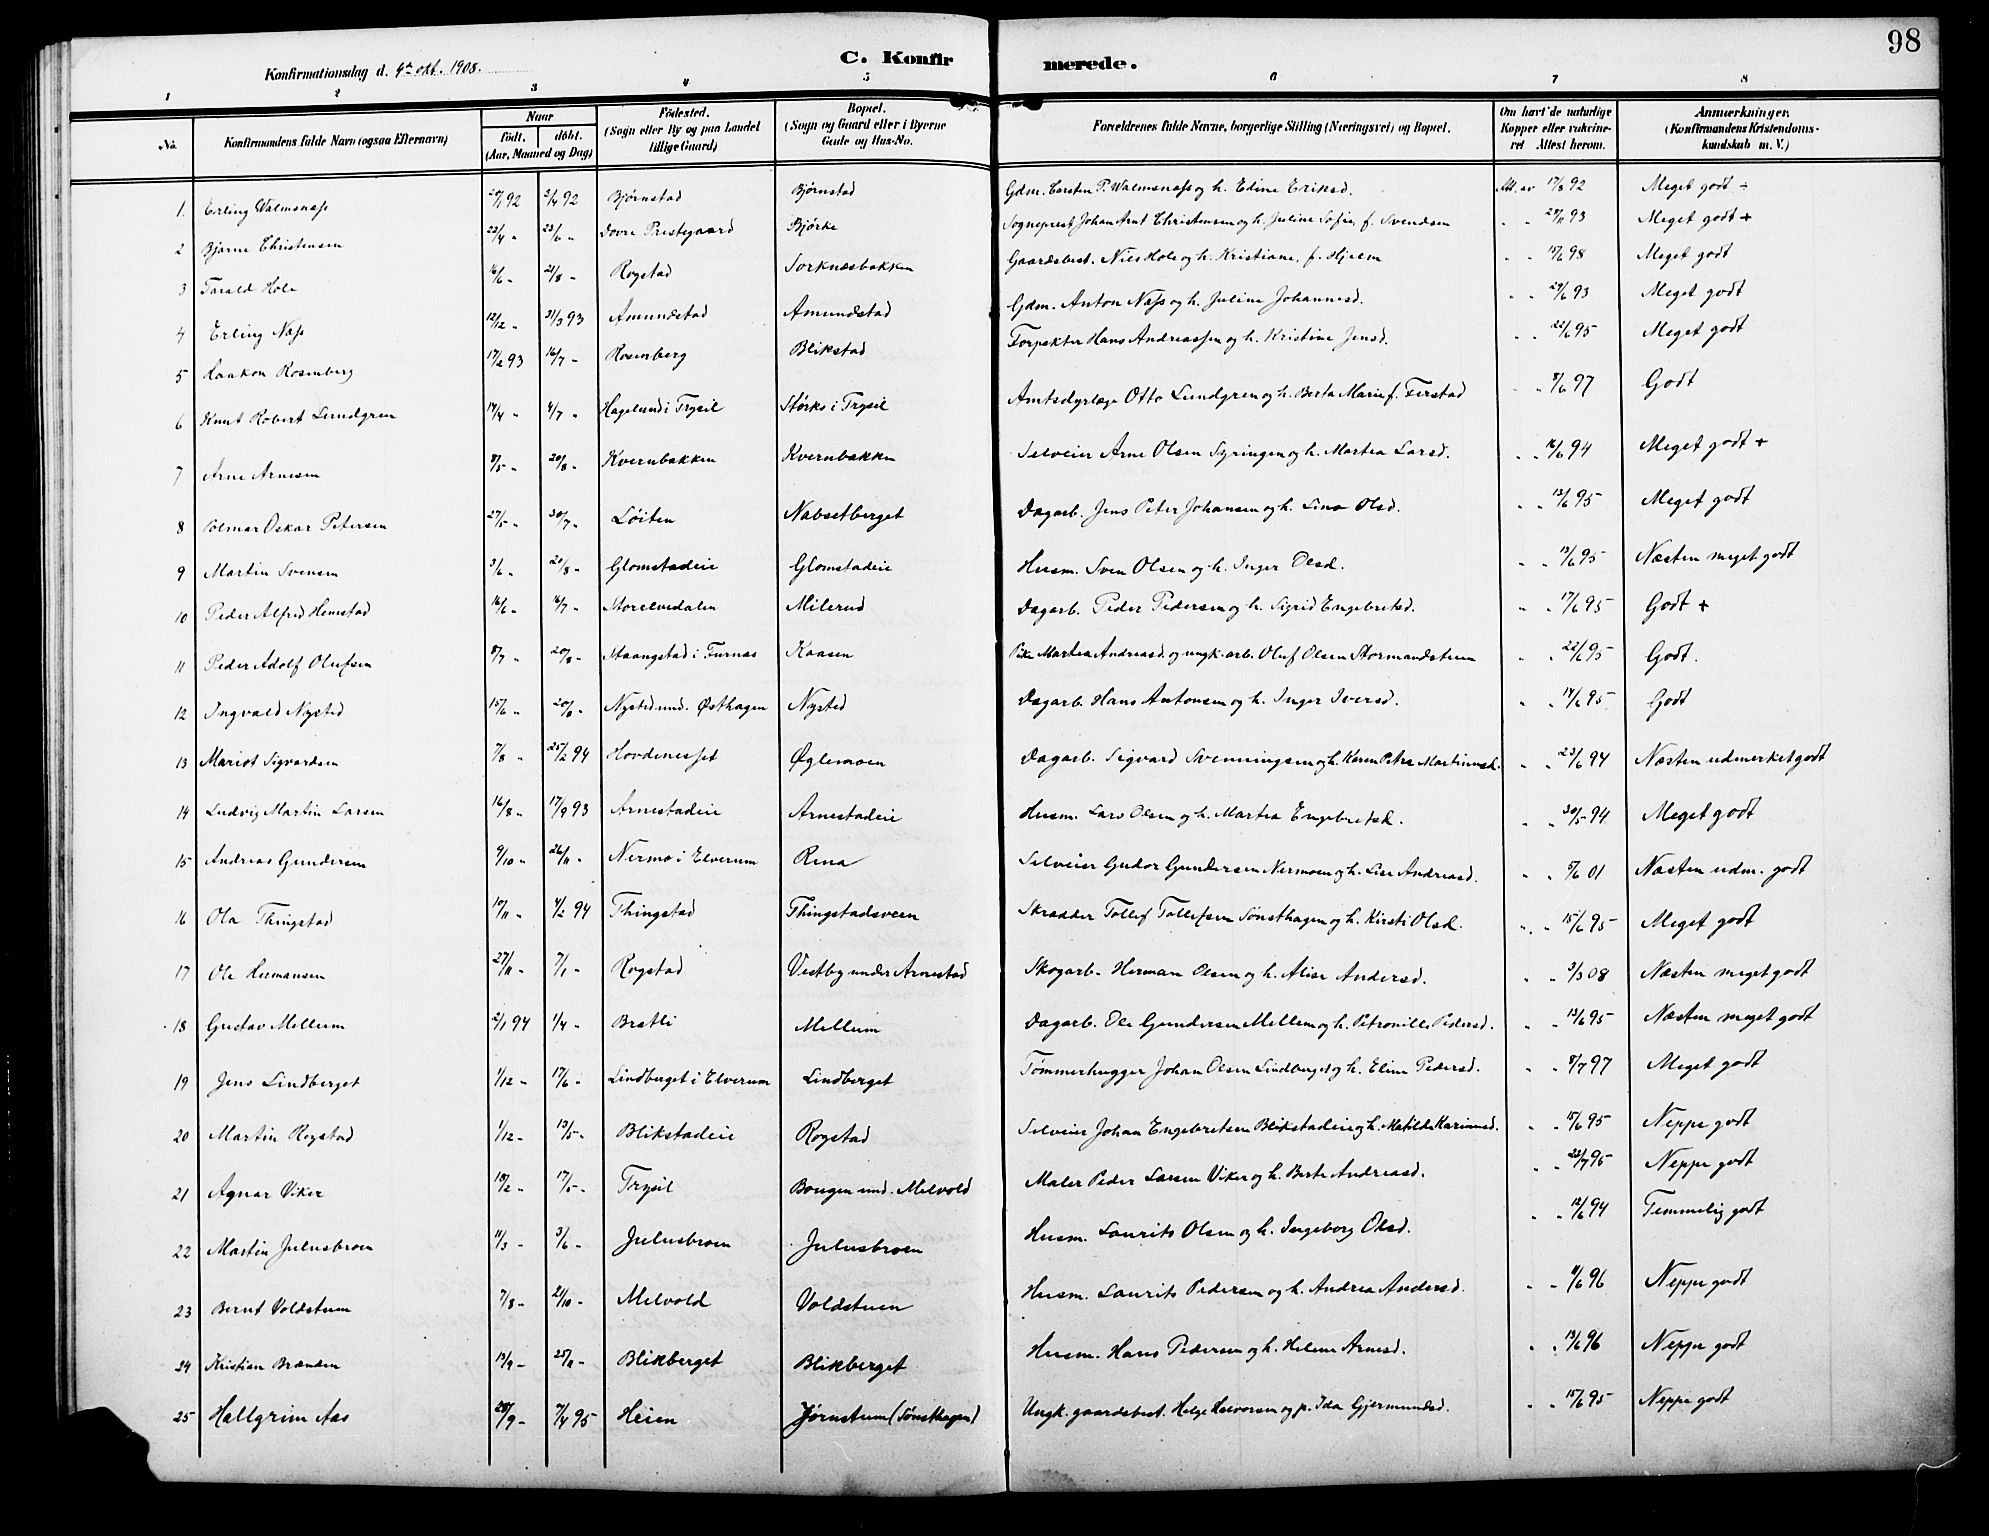 98
Konfirmationsdag d. 4de okt. 1908.
C. Konfirmerede.
1 2 3 4 5 6 7 8
No.
Konfirmandens fulde Navn (ogsaa Efternavn)
Naar født. døbt. (Aar, Maaned og Dag)
Fødested. (Sogn eller By og paa Landet tillige Gaard)
Bopæl. (Sogn og Gaard eller i Byerne Gade og Hus-No.
Forældrenes fulde Navne, borgerlige Stilling (Næringsvei) og Bopæl.
Om havt de naturlige Kopper eller vakcineret Attest herom.
Anmærkninger. (Konfirmandens Kristendomskundskab m. V.)
1. Erling Walmsnæss 20/1 92 3/4 92 Bjørnstad Bjørnstad Gdm. Karsten P. Walmsnæss og h. Edine Eriksd. Att. av 17/8 92 Meget godt ÷
2 Bjarne Christensen 22/4 " 23/6 " Dovre Prestegaard Bjørke Sogneprest Johan Arnt Christensen og h. Juline Sofie, f. Svendsen " " 29/11 93 Meget godt +
3 Tarald Hole 16/6 - 21/8 - Rogstad Sorknæsbakken Gaardsbest. Nils Hole og h. Kristiane, f. Hjelm " " 15/6 98 Meget godt
4 Erling Næss 12/12 " 31/3 93 Amundstad Amundstad Gdm. Anton Næss og h. Juline Johannesd. " " 29/6 93 Meget godt
5 Haakon Rosenberg 17/2 93 16/7 - Rosenberg Blikstad Forpakter Hans Andreassen og h. Kristine Jensd. " " 22/6 95 Meget godt
6 Knut Robert Lundgren 14/4 " 4/7 " Hagelund i Trysil Størks i Trysil Amtsdyrlæge Otto Lundgren og h. Berta Marie f. Ferstad " " 8/6 97 Godt
7 Arne Arnesen 8/5 " 20/8 - Kvernbakken Kvernbakken Selveier Arne Olsen Syringen og h. Martea Larsd. " " 16/6 94 Meget godt +
8 Polmar Oskar Petersen 27/5 - 30/7 - Løiten Nabsetberget Dagarb. Jens Peter Johansen og h. Lina Olsd. " " 13/6 95 Meget godt
9 Martin Svensen 3/6 - 20/8 - Glomstadeie Glomstadeie Husm. Sven Olsen og h. Inger Olsd. " " 13/6 95 Næsten meget godt
10 Peder Alfred Hemstad 16/6 - 16/7 - Storelvedalen Milerud Dagarb. Peder Pedersen og h. Sigrid Engebretsd. " " 17/6 95 Godt +
11 Peder Adolf Olufsen 8/7 " 20/8 - Staangstad i Furnæs Kaasen Pike Martea Andreasd. og ungk. arb. Oluf Olsen Stormandstuen " " 22/6 95 Godt.
12 Ingvald Nysted 15/6 " 20/8 " Nysted und. Østhagen Nysted Dagarb. Hans Antonsen og h. Inger Iversd. " " 14/6 95 Godt
13 Mariot Sigvardsen 7/8 " 25/2 94 Hovdenesset Øglemoen Dagarb. Sigvard Svenningsen og h. Karen Petra Martinusd. " " 23/6 94 Næsten udmerket godt
14 Ludvig Martin Larsen 16/8 - 17/9 93 Arnestadeie Arnestadeie Husm. Lars Olsen og h. Martea Engebretsd. " " 30/5 94 Meget godt
15 Andreas Gundersen 9/10 - 26/11 - Nermo i Elverum Rena Selveier Gudor Gundersen Nermoen og h. Lise Andreasd. " " 5/6 01 Næsten udm. godt
16 Ola Thingstad 10/11 " 4/2 94 Thingstad Thingstadsveen Skrædder Tollef Tollefsen Sønsthagen og h. Kirsti Olsd. " " 15/6 95 Meget godt
17 Ole Hermansen 27/11 - 7/1 - Rogstad Vestby under Arnestad Skogarb. Herman Olsen og h. Alise Andersd. " " 3/3 08 Næsten meget godt
18 Gustav Mellum 2/1 94 1/4 - Bratli Mellum Dagarb. Ole Gundersen Mellem og h. Petronille Pedersd. " " 13/6 95 Næsten meget godt
19 Jens Lindberget 1/12 - 17/6 - Lindberget i Elverum Lindberget Tømmerhugger Johan Olsen Lindberget og h. Eline Pedersd. " " 8/7 97 Meget godt
20 Martin Rogstad 1/12 - 13/5 - Blikstadeie Rogstad Selveier Johan Engebretsen Blikstadeie og h. Matilde Karinusd. " " 15/6 95 Neppe godt
21 Agnar Viker 18/2 " 17/5 - Trysil Bougen und. Melvold Maler Peder Larsen Viker og h. Berte Andreasd. " " 22/7 95 Neppe godt
22 Martin Julusbroen 11/3 " 3/6 - Julusbroen Julusbroen Husm. Laurits Olsen og h. Ingeborg Olsd. " " 12/6 94 Temmelig godt
23 Bernt Voldstuen 7/8 - 21/10 - Melvold Voldstuen Husm. Laurits Pedersen og h. Andrea Andersd. " " 11/6 96 Neppe godt
24 Kristian Brænden 13/9 - 25/11 - Blikberget Blikberget Husm. Hans Pedersen og h. Helene Arnesd. " " 13/6 96 Neppe godt
25 Hallgrim Aas 28/9 - 7/4 95 Heien Jørnstuen (Sønsthagen) Ungk. gaardsbest. Helge Halvorsen og p. Ida Gjermundsd. " " 15/6 95 Neppe godt